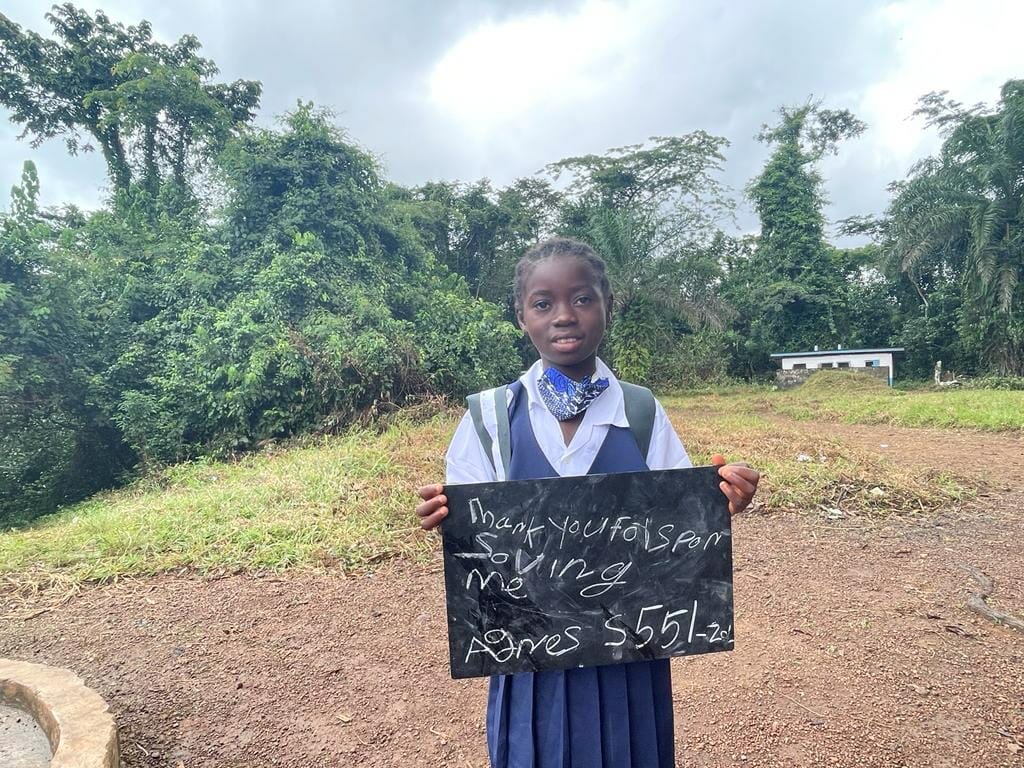 Thank you for spon
soring
me
Agnes S551-20